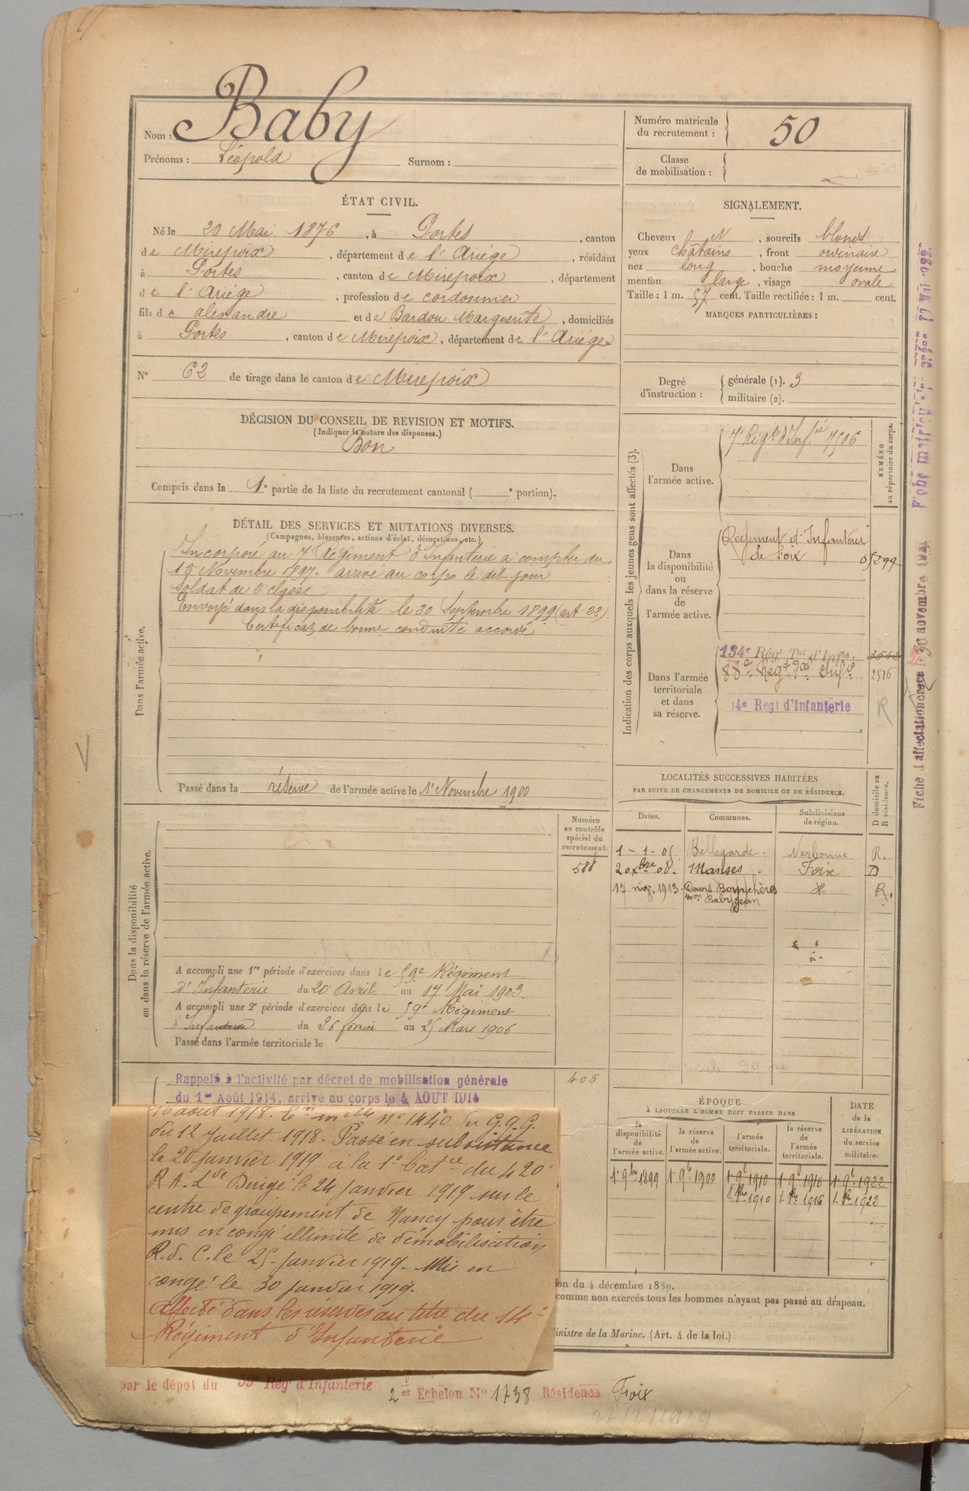 Nom : Baby
Prénoms : Léopold Surnom :
Numéro matricule du recrutement : 50
Classe de mobilisation :
ÉTAT CIVIL.
Né le 20 Mai 1876, à Portes, canton
de Mirepoix, département de l'Ariége, résidant
à Portes, canton de Mirepoix, département
de l'Ariége, profession de cordonnier
fils de alexandre et de Bardou Marguerite, domiciliés
à Portes, canton de Mirepoix, département de l'Ariége
N° 62 de tirage dans le canton de Mirepoix
SIGNALEMENT.
Cheveux N, sourcils blonds
yeux châtains, front ordinaire
nez long, bouche moyenne
menton large, visage ovale
Taille : 1 m. 57 cent. Taille rectifiée : 1 m. cent.
MARQUES PARTICULIÈRES :
Degré d'instruction : générale (1). 3
militaire (2).
DÉCISION DU CONSEIL DE REVISION ET MOTIFS.
(Indiquer la nature des dispenses.)
Bon
Compris dans la 1e partie de la liste du recrutement cantonal ( e portion).
DÉTAIL DES SERVICES ET MUTATIONS DIVERSES.
(Campagnes, blessures, actions d'éclat, décorations, etc.)
Dans l'armée active.
Incorporé au 7e Régiment d'Infanterie à compter du
15 Novembre 1897. arrivé au corps le dit jour
Soldat de 2e classe
Envoyé dans la disponibilité le 20 Septembre 1899 (art 22)
Certificat de bonne conduite accordé
Passé dans la réserve de l'armée active le 1er Novembre 1900
Indication des corps auxquels les jeunes gens sont affectés (3).
NUMÉRO au répertoire du corps.
Dans l'armée active.
7e Régt d'Infie 7506
Dans la disponibilité ou dans la réserve de l'armée active.
Régiment d'Infanterie
de Foix
Dans l'armée territoriale et dans sa réserve.
134e Rég Tal d'Infie
88e Régt Inf 2816
14e Regt d'Infanterie
R
LOCALITÉS SUCCESSIVES HABITÉES
PAR SUITE DE CHANGEMENTS DE DOMICILE OU DE RÉSIDENCE.
Dates. Communes. Subdivisions de région. D domicile ou R résidence.
1-1-05 Bellegarde. Narbonne R.
20 xbre 08. Manses. Foix D
17 1913 R.
Dans la disponibilité ou dans la réserve de l'armée active.
Numéro au contrôle spécial du recrutement.
588
A accompli une 1re période d'exercices dans le 59e Régiment
d'Infanterie du 20 Avril au 17 Mai 1903.
A accompli une 2e période d'exercices dans le 59e Régiment
d'Infanterie du 26 février au 25 Mars 1906
Passé dans l'armée territoriale le
406
Rappelé à l'activité par décret de mobilisation générale
du 1er Août 1914, arrivé au corps le 4 AOUT 1914
16 août 1918. n° 1440 du G.Q.G.
du 12 Juillet 1918. Passé en subsistance
le 20 janvier 1919 à la 1e batie du 420e
R.A.Lde Dirigé le 24 Janvier 1919 sur le
centre de groupement de Nancy pour être
mis en congé illimité de démobilisation
R.d.C. le 25 janvier 1919. Mis en
congé le 30 janvier 1919.
Affecté dans les réserves au titre du 14e
Régiment d'Infanterie
ÉPOQUE
À LAQUELLE L'HOMME DOIT PASSER DANS
la disponibilité de l'armée active. la réserve de l'armée active. l'armée territoriale. la réserve de l'armée territoriale.
DATE de la LIBÉRATION du service militaire.
1er 9bre 1899 1er 9bre 1900 1er 9bre 1910 1er 9bre 1916 1er 9bre 1922
1. 1910 1. 1916 1. 1922
on du 4 décembre 1889.
comme non exercés tous les hommes n'ayant pas passé au drapeau.
Ministre de la Marine. (Art. 4 de la loi.)
par le dépôt du 59e Reg d'Infanterie 2e Echelon No 1738 Résidence Foix